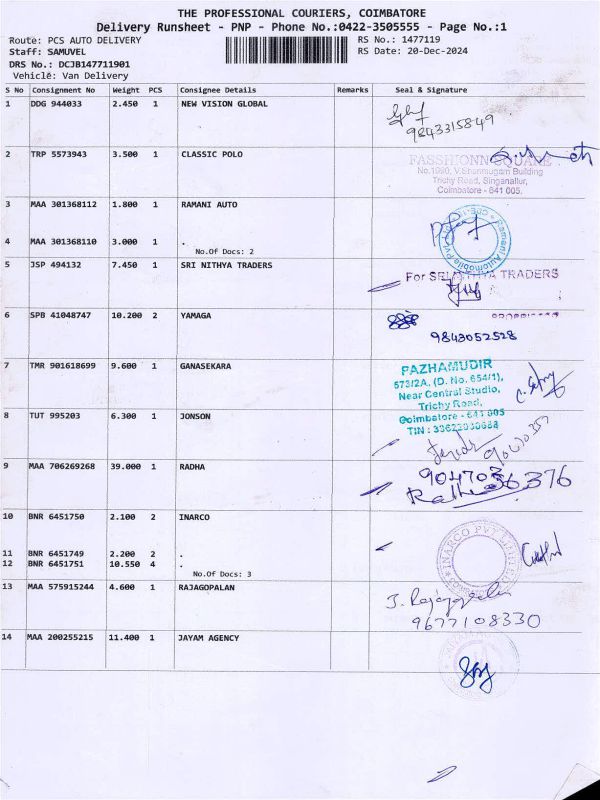 THE PROFESSIONAL COURIERS, COIMBATORE
Delivery Runsheet - PNP - Phone No.:0422-3505555 - Page No.:1
Route: PCS AUTO DELIVERY
RS No.: 1477119
Staff: SAMUVEL
RS Date: 20-Dec-2024
DRS No.: DCJB147711901
Vehicle: Van Delivery
S No Consignment No Weight PCS Consignee Details Remarks Seal & Signature
1 DDG 944033 2.450 1 NEW VISION GLOBAL
9843315849
2 TRP 5573943 3.500 1 CLASSIC POLO
FASSHIONN SQUARE
No.1090, V.Shunmugam Building
Trichy Road, Singanallur,
Coimbatore - 641 005.
3 MAA 301368112 1.800 1 RAMANI AUTO
4 MAA 301368110 3.000 1 .
No.Of Docs: 2
Ramani Automobile Pvt Ltd
5 JSP 494132 7.450 1 SRI NITHYA TRADERS
For SRI NITHYA TRADERS
6 SPB 41048747 10.200 2 YAMAGA
9843052528
7 TMR 901618699 9.600 1 GANASEKARA
PAZHAMUDIR
573/2A, (D. No. 654/1),
Near Central Studio,
Trichy Road,
Coimbatore - 641 005
8 TUT 995203 6.300 1 JONSON
9 MAA 706269268 39.000 1 RADHA
904703 36376
Radha
10 BNR 6451750 2.100 2 INARCO
11 BNR 6451749 2.200 2 .
12 BNR 6451751 10.550 4 .
No.Of Docs: 3
INARCO PVT LIMITED
13 MAA 575915244 4.600 1 RAJAGOPALAN
J. Rajagopalan
9677108330
14 MAA 200255215 11.400 1 JAYAM AGENCY